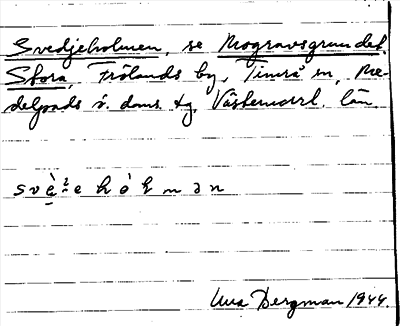 Svedjeholmen, se Mogravsgrundet,
Stora, Frölands by, Timrå sn, Me-
delpads v. doms. tg. Västernorrl. län.
Bergman 1944.